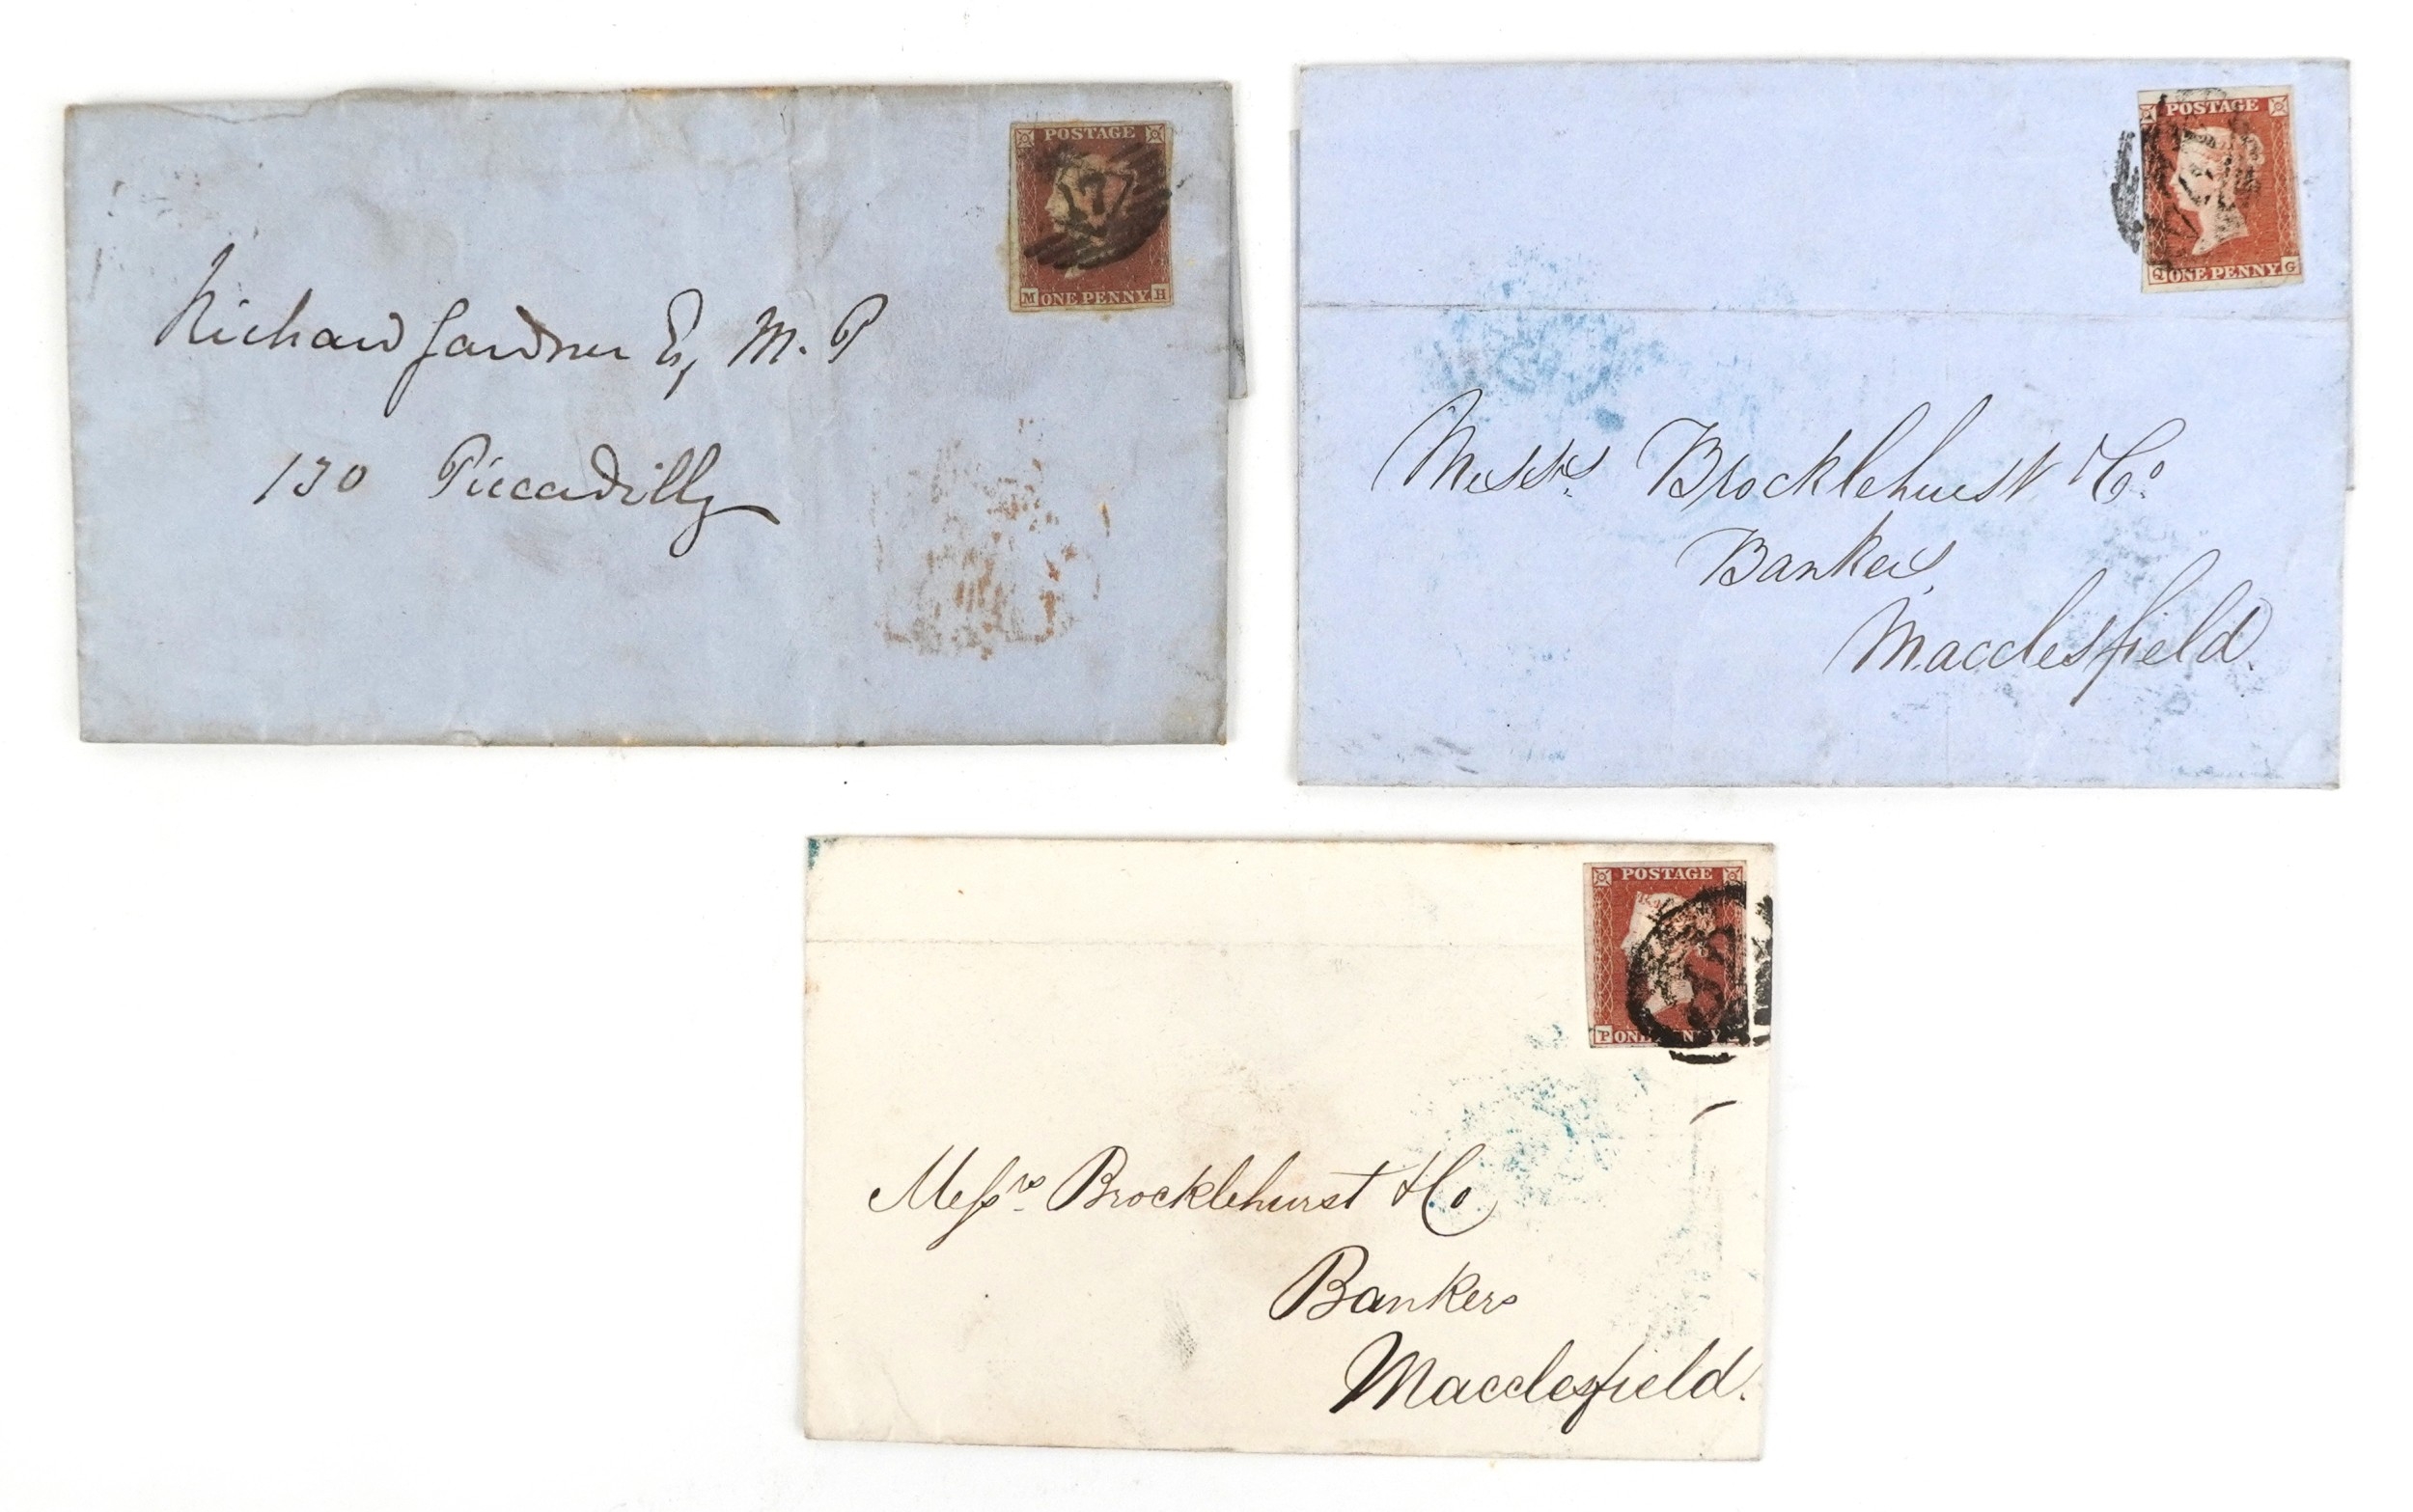 POSTAGE
7
M ONE PENNY H
Richard Gardner Esq, M. P
130 Piccadilly
POSTAGE
Q ONE PENNY G
Messrs. Brocklehurst & Co.
Bankers,
Macclesfield.
POSTAGE
P ONE PENNY
Messrs. Brocklehurst & Co
Bankers
Macclesfield.